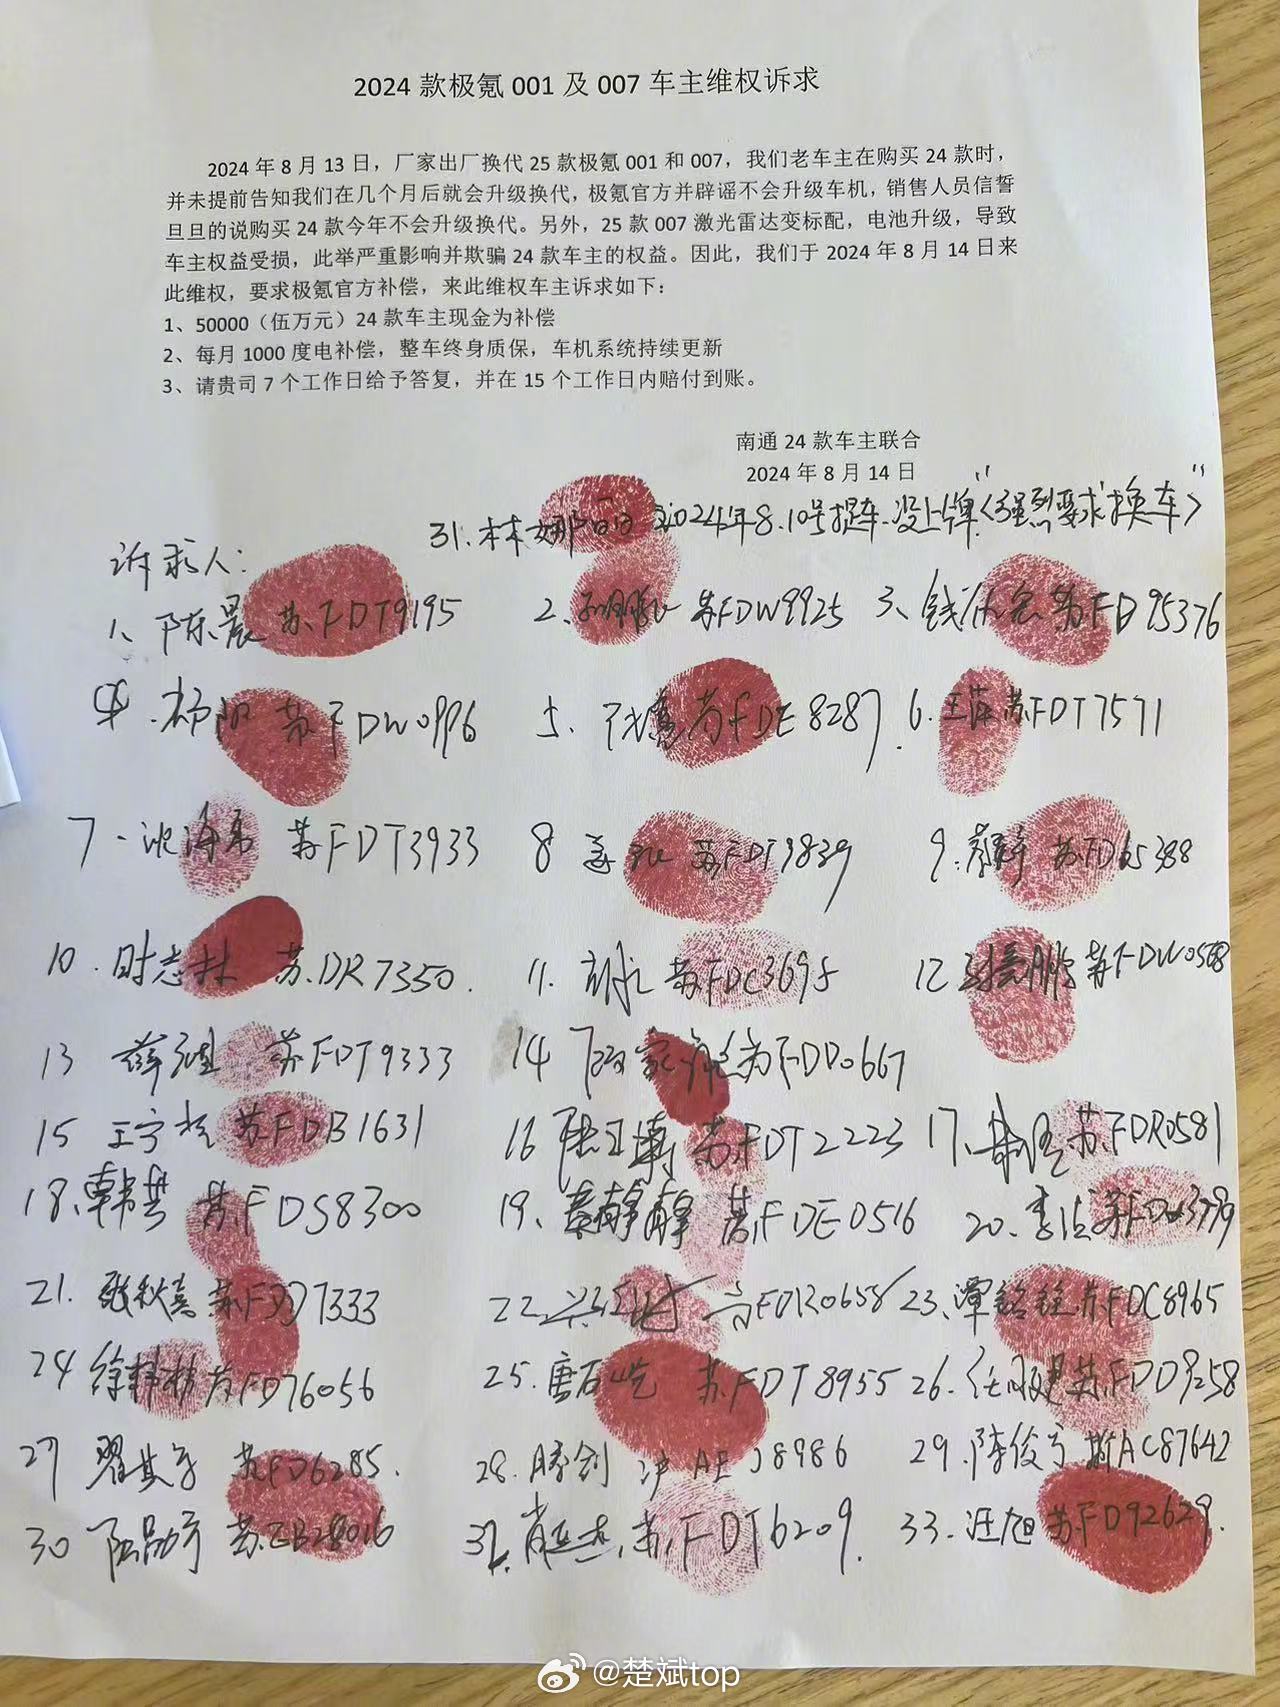 2024 款极氪 001 及 007 车主维权诉求
2024 年 8 月 13 日，厂家出厂换代 25 款极氪 001 和 007，我们老车主在购买 24 款时，
并未提前告知我们在几个月后就会升级换代，极氪官方并辟谣不会升级车机，销售人员信誓
旦旦的说购买 24 款今年不会升级换代。另外，25 款 007 激光雷达变标配，电池升级，导致
车主权益受损，此举严重影响并欺骗 24 款车主的权益。因此，我们于 2024 年 8 月 14 日来
此维权，要求极氪官方补偿，来此维权车主诉求如下：
1、50000（伍万元）24 款车主现金为补偿
2、每月 1000 度电补偿，整车终身质保，车机系统持续更新
3、请贵司 7 个工作日给予答复，并在 15 个工作日内赔付到账。
南通 24 款车主联合
2024 年 8 月 14 日
31.林娜 2024年8.10号提车.没上牌“〈强烈要求换车〉”
诉求人：
1、陈晨 苏FDT9195 2、 苏FDW9925 3、钱 苏FD95376
4. 阳 苏FDW0996 5、 苏FDE8287. 6.王萍 苏FDT7571
7.沈海 苏FDT3933 8 苏FDT9839 9. 苏FD65388
10.时志林 苏DR7350. 11. 苏FDC3695 12 鹏 苏FDW0568
13 薛 苏FDT9333 14 家 苏FDD0667
15 王宇 苏FDB1631 16 陆 苏FDT2223 17. 苏FDR0581
18.韩芸 苏FDS8300 19、黄静静 苏FDE0516 20.李洁 苏F
21.张秋 苏FDD7333 22. FDR0658 23.谭铭铨 苏FDC8965
24 徐 苏FD76056 25.唐石屹 苏FDT8955 26.任 苏FDD9258
27 翟其 苏FD6285. 28.滕创 沪AE J8986 29.陈俊 AC87642
30 陆勋 苏EB28016 32. 肖 苏FDT6209. 33.汪旭 苏FD92629.
@楚斌top